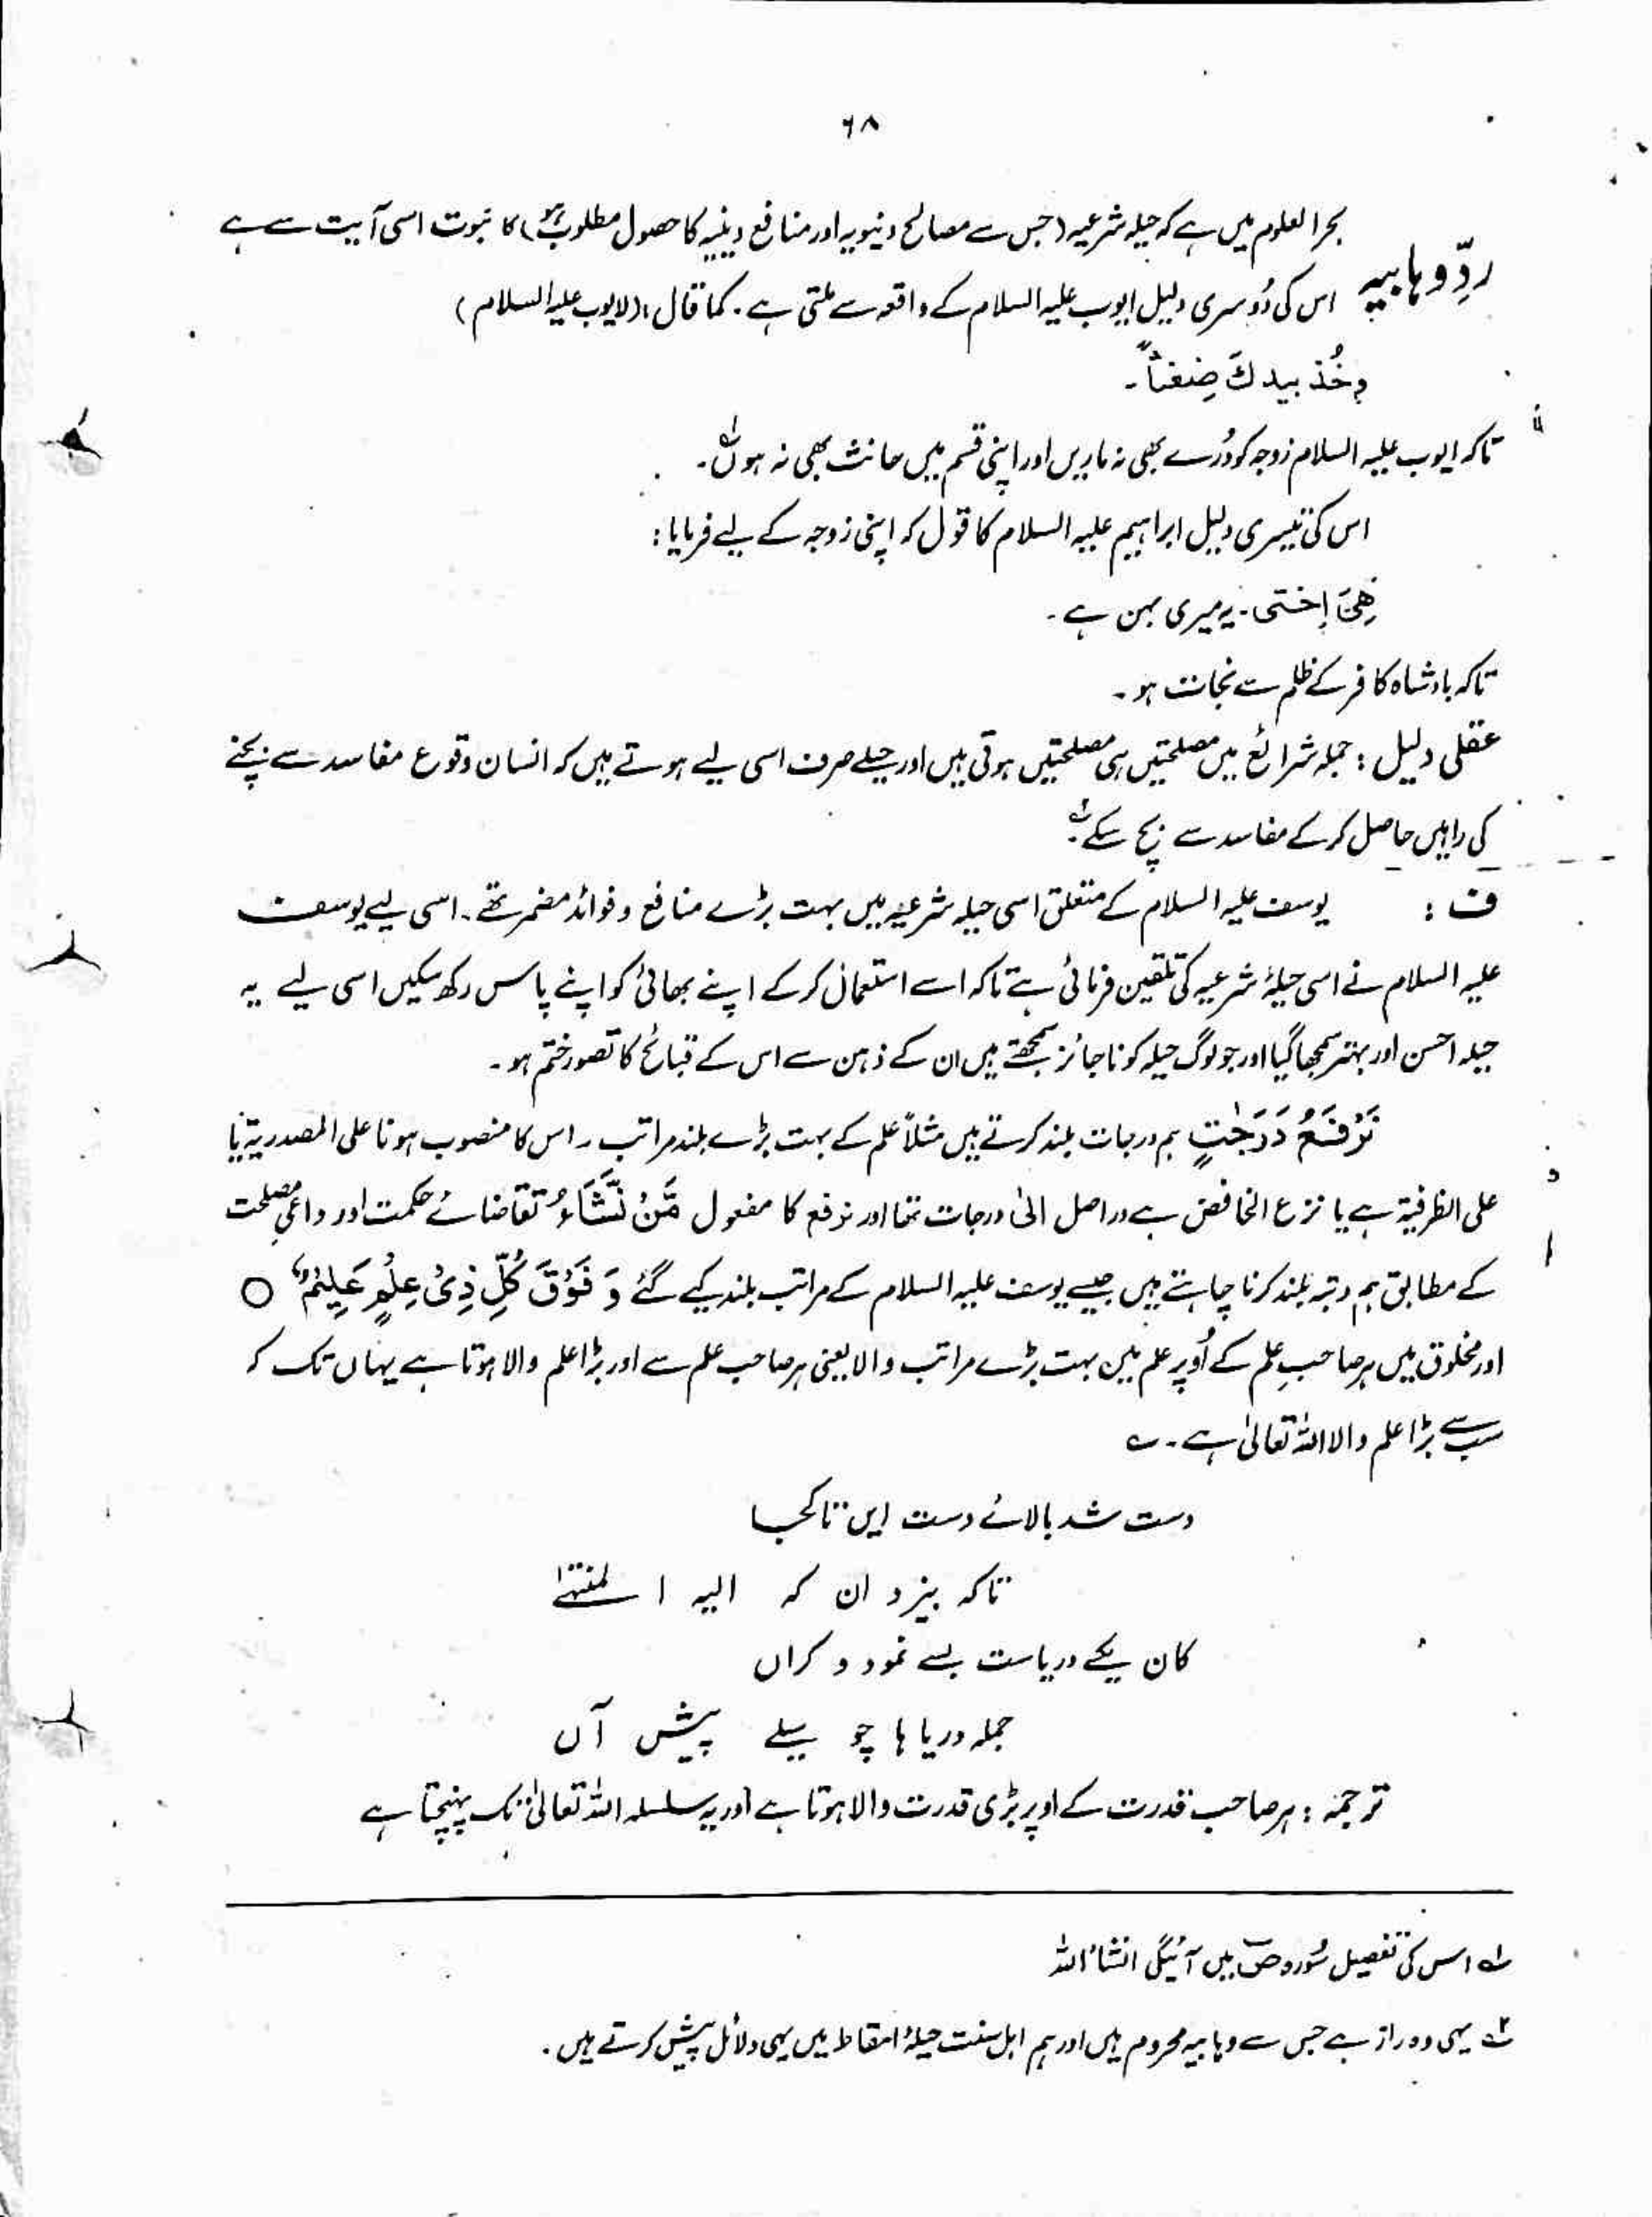 ۶۸
ردِّ وہابیہ
بحر العلوم میں ہے کہ حیلہ شرعیہ (جس سے مصالح دنیویہ اور منافع دینیہ کا حصول مطلوب ہو) کا ثبوت اسی آیت سے ہے
اس کی دُوسری دلیل ایوب علیہ السلام کے واقعہ سے ملتی ہے۔ کما قال (لایوب علیہ السلام)
وخُذ بیدكَ ضِغثاً۔
تاکہ ایوب علیہ السلام زوجہ کو دُرے بھی نہ ماریں اور اپنی قسم میں حانث بھی نہ ہوں لہ۔
اس کی تیسری دلیل ابراہیم علیہ السلام کا قول کہ اپنی زوجہ کے لیے فرمایا :
هِیَ إختی۔ یہ میری بہن ہے۔
تاکہ بادشاہ کافر کے ظلم سے نجات ہو۔
عقلی دلیل : جملہ شرائع میں مصلحتیں ہی مصلحتیں ہوتی ہیں اور حیلے صرف اسی لیے ہوتے ہیں کہ انسان وقوع مفاسد سے بچنے
کی راہیں حاصل کرکے مفاسد سے بچ سکے۔
ف : یوسف علیہ السلام کے متعلق اسی حیلہ شرعیہ میں بہت بڑے منافع و فوائد مضمر تھے۔ اسی لیے یوسف
علیہ السلام نے اسی حیلۂ شرعیہ کی تلقین فرمائی ہے تاکہ اسے استعمال کرکے اپنے بھائی کو اپنے پاس رکھ سکیں اسی لیے یہ
حیلہ احسن اور بہتر سمجھا گیا اور جو لوگ حیلہ کو ناجائز سمجھتے ہیں ان کے ذہن سے اس کے قبائح کا تصور ختم ہو۔
نَرْفَعُ دَرَجٰتٍ ہم درجات بلند کرتے ہیں مثلاً علم کے بہت بڑے بلند مراتب۔ اس کا منصوب ہونا علی المصدریۃ یا
علی الظرفیۃ ہے یا نزع الخافض ہے دراصل الیٰ درجات تھا اور نرفع کا مفعول مَّنْ نَّشَآءُ تقاضائے حکمت اور داعیِ مصلحت
کے مطابق ہم رتبہ بلند کرنا چاہتے ہیں جیسے یوسف علیہ السلام کے مراتب بلند کیے گئے وَ فَوْقَ كُلِّ ذِیْ عِلْمٍ عَلِیْمٌ ○
اور مخلوق میں ہر صاحبِ علم کے اُوپر علم میں بہت بڑے مراتب والا یعنی ہر صاحب علم سے اور بڑا علم والا ہوتا ہے یہاں تک کہ
سب سے بڑا علم والا اللہ تعالیٰ ہے۔ ؎
دست شد بالائے دست ایں تا کجا
تا کہ بیزدان کہ الیہ المنتہٰے
کان یکے دریاست بے غور و کراں
جملہ دریاہا چو سیلے پیش آں
ترجمہ : ہر صاحب قدرت کے اوپر بڑی قدرت والا ہوتا ہے اور یہ سلسلہ اللہ تعالیٰ تک پہنچتا ہے
لہ اس کی تفصیل سُورہ صٓ میں آئیگی انشاءاللہ
۲ یہی وہ راز ہے جس سے وہابیہ محروم ہیں اور ہم اہل سنت حیلۂ اسقاط میں یہی دلائل پیش کرتے ہیں۔